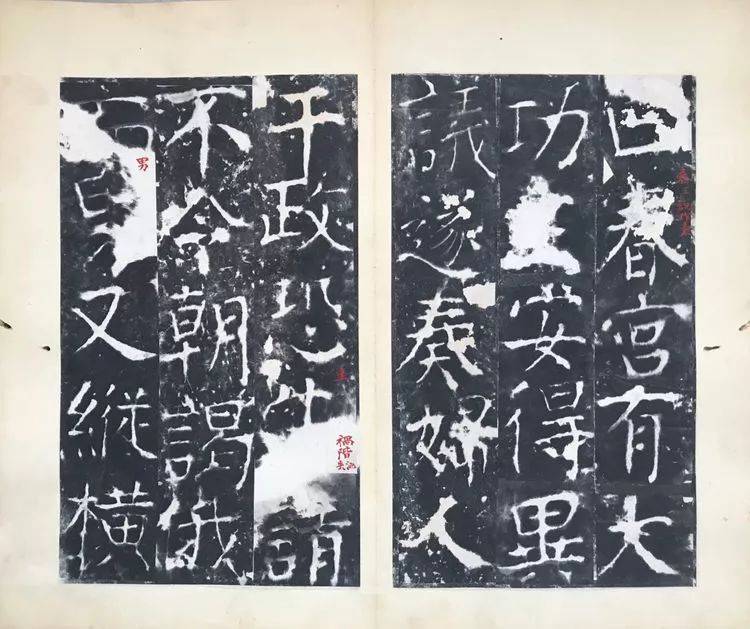 春宮有大
功主安得異
議遂奏婦人
干政恐請
生
禍階
不令朝謁俄
男
又縱橫